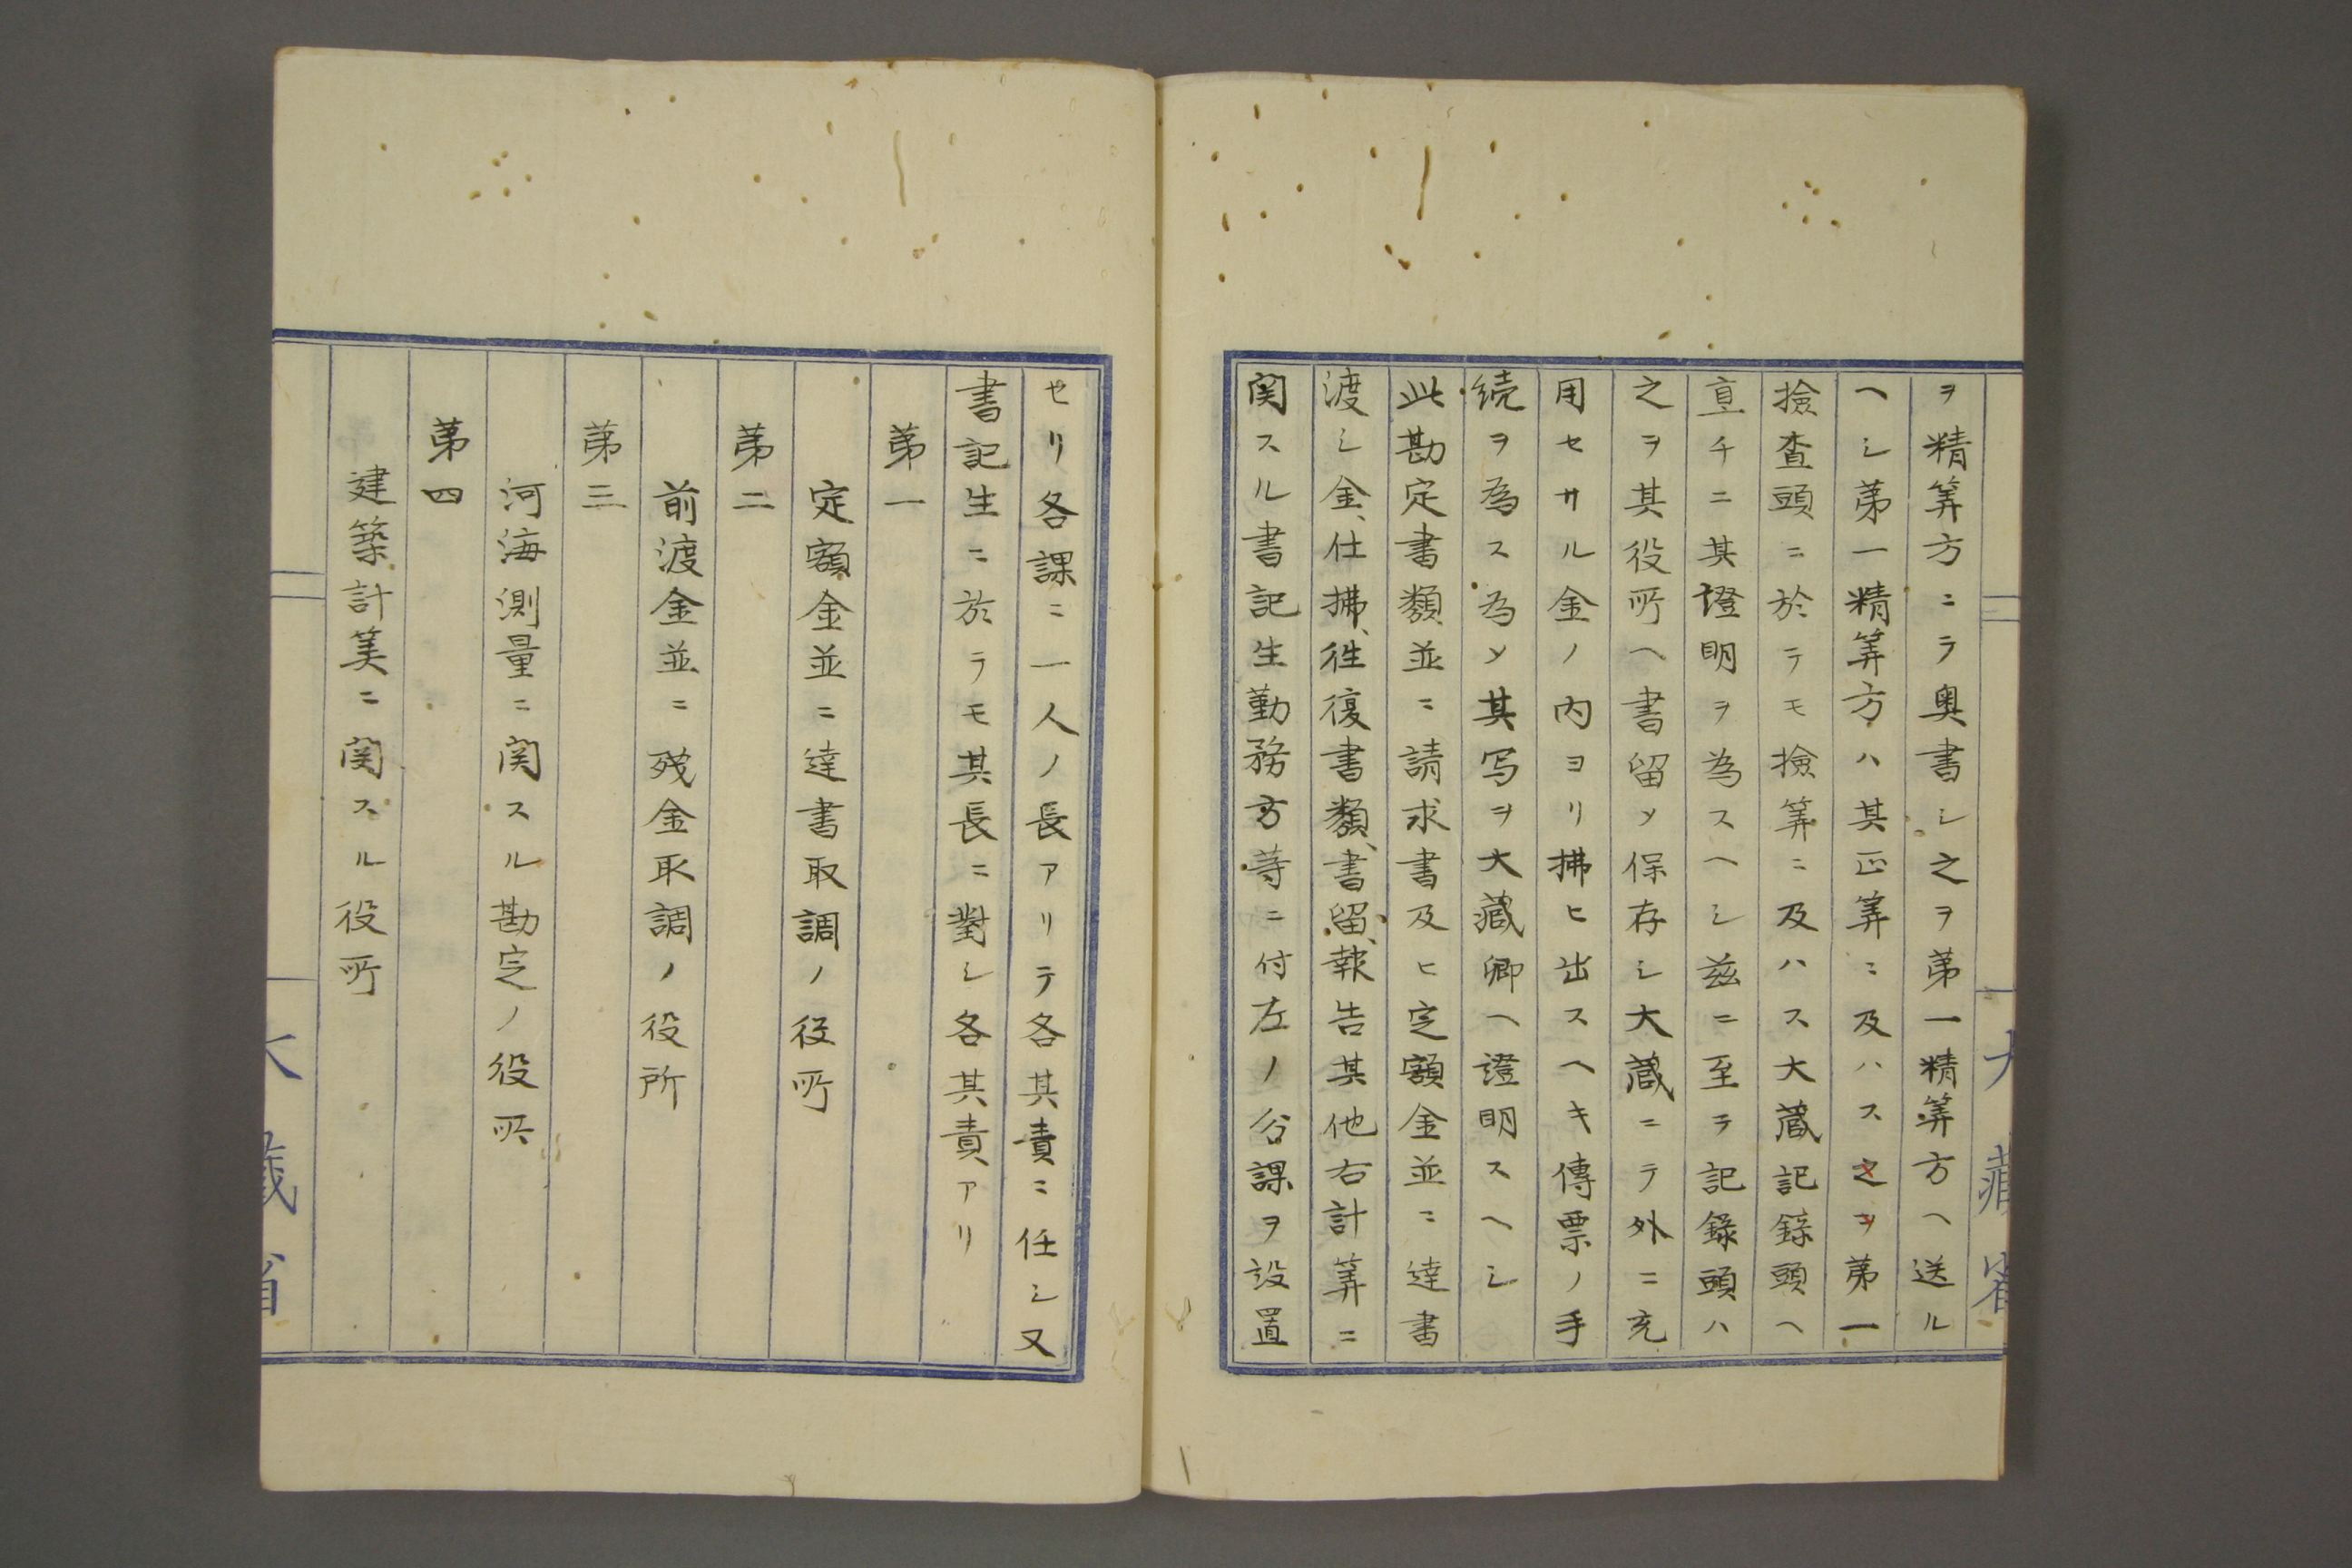 ヲ精筭方ニテ奥書シ之ヲ第一精筭方ヘ送ル
ヘシ第一精筭方ハ其正筭ニ及ハス之ヲ第一
撿査頭ニ於テモ撿筭ニ及ハス大蔵記録頭ヘ
直チニ其證明ヲ為スヘシ茲ニ至テ記録頭ハ
之ヲ其役所ヘ書留メ保存シ大蔵ニテ外ニ充
用セサル金ノ内ヨリ拂ヒ出スヘキ傳票ノ手
続ヲ為ス為メ其写ヲ大藏卿ヘ證明スヘシ
此勘定書類並ニ請求書及ヒ定額金並ニ達書
渡シ金、仕拂、徃復書類、書留、報告其他右計筭ニ
関スル書記生勤務方等ニ付左ノ分課ヲ設置
セリ各課ニ一人ノ長アリテ各其責ニ任シ又
書記生ニ於テモ其長ニ對シ各其責アリ
第一
定額金並ニ達書取調ノ役所
第二
前渡金並ニ残金取調ノ役所
第三
河海測量ニ関スル勘定ノ役所
第四
建築計筭ニ関スル役所
大藏省
大藏省